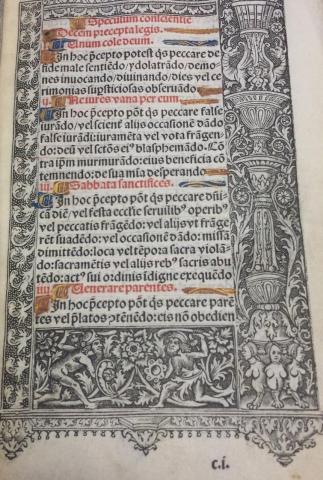 Speculum conscientie
Decem precepta legis.
Unum cole deum.
In hoc p̄cepto potest q̄s peccare de
ne male sentiēdo, ydolatrādo, demo-
nes inuocando, diuinando, dies vel ce
rimonias supsticiosas obseruādo
Ne iures vana per eum.
In hoc p̄cepto pōt q̄s peccare false
iurādo, vel scient̄ alijs occasionē dādo
falsɇ iurādi: iuramēta vel vota frāgen-
do: deū vel sctōs ei⁹ blasphemādo. Cō
tra ip̄m murmurādo: eius beneficia cō
temnendo: de sua mīa desperando
Sabbata sanctifices.
In hoc p̄cepto pōt q̄s peccare dn̄i-
cā diē, vel festa eccl'ie seruilib⁹ operib⁹
vel peccatis frāgēdo: vel alijs vt frāge
rēt suadēdo: vel occasionē dādo: missā
dimittēdo: loca vel tēpora sacra violā-
do: sacramētis vel alijs reb⁹ sacris abu
tēdo: act⁹ sui ordinis īdigne exequēdo
iiii. Uenerare parentes.
In hoc p̄cepto pōt q̄s peccare parē
tes vel p̄latos ꝯtēnēdo: eis nō obedien
c.i.